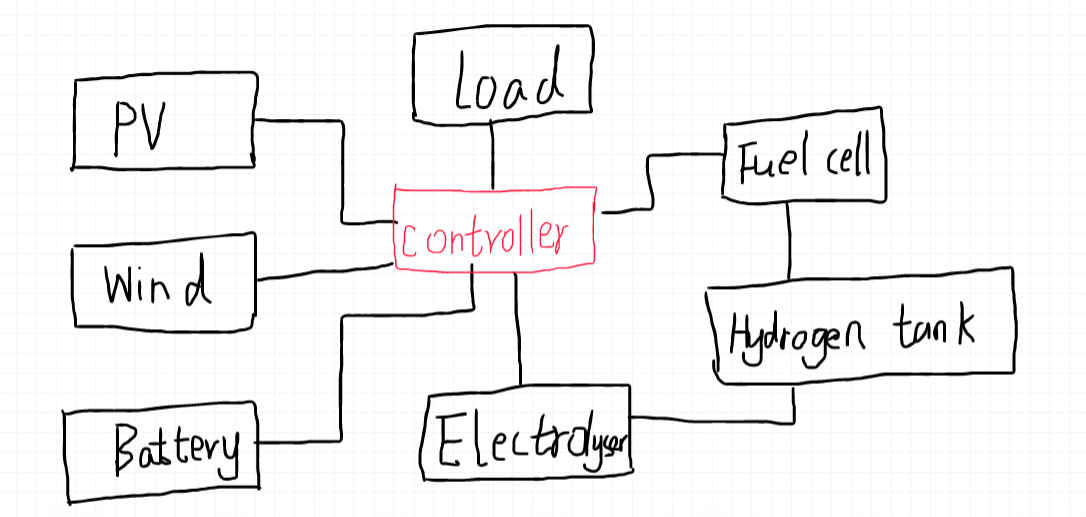 Load
PV
Fuel cell
controller
Wind
Hydrogen tank
Battery
Electrolyser